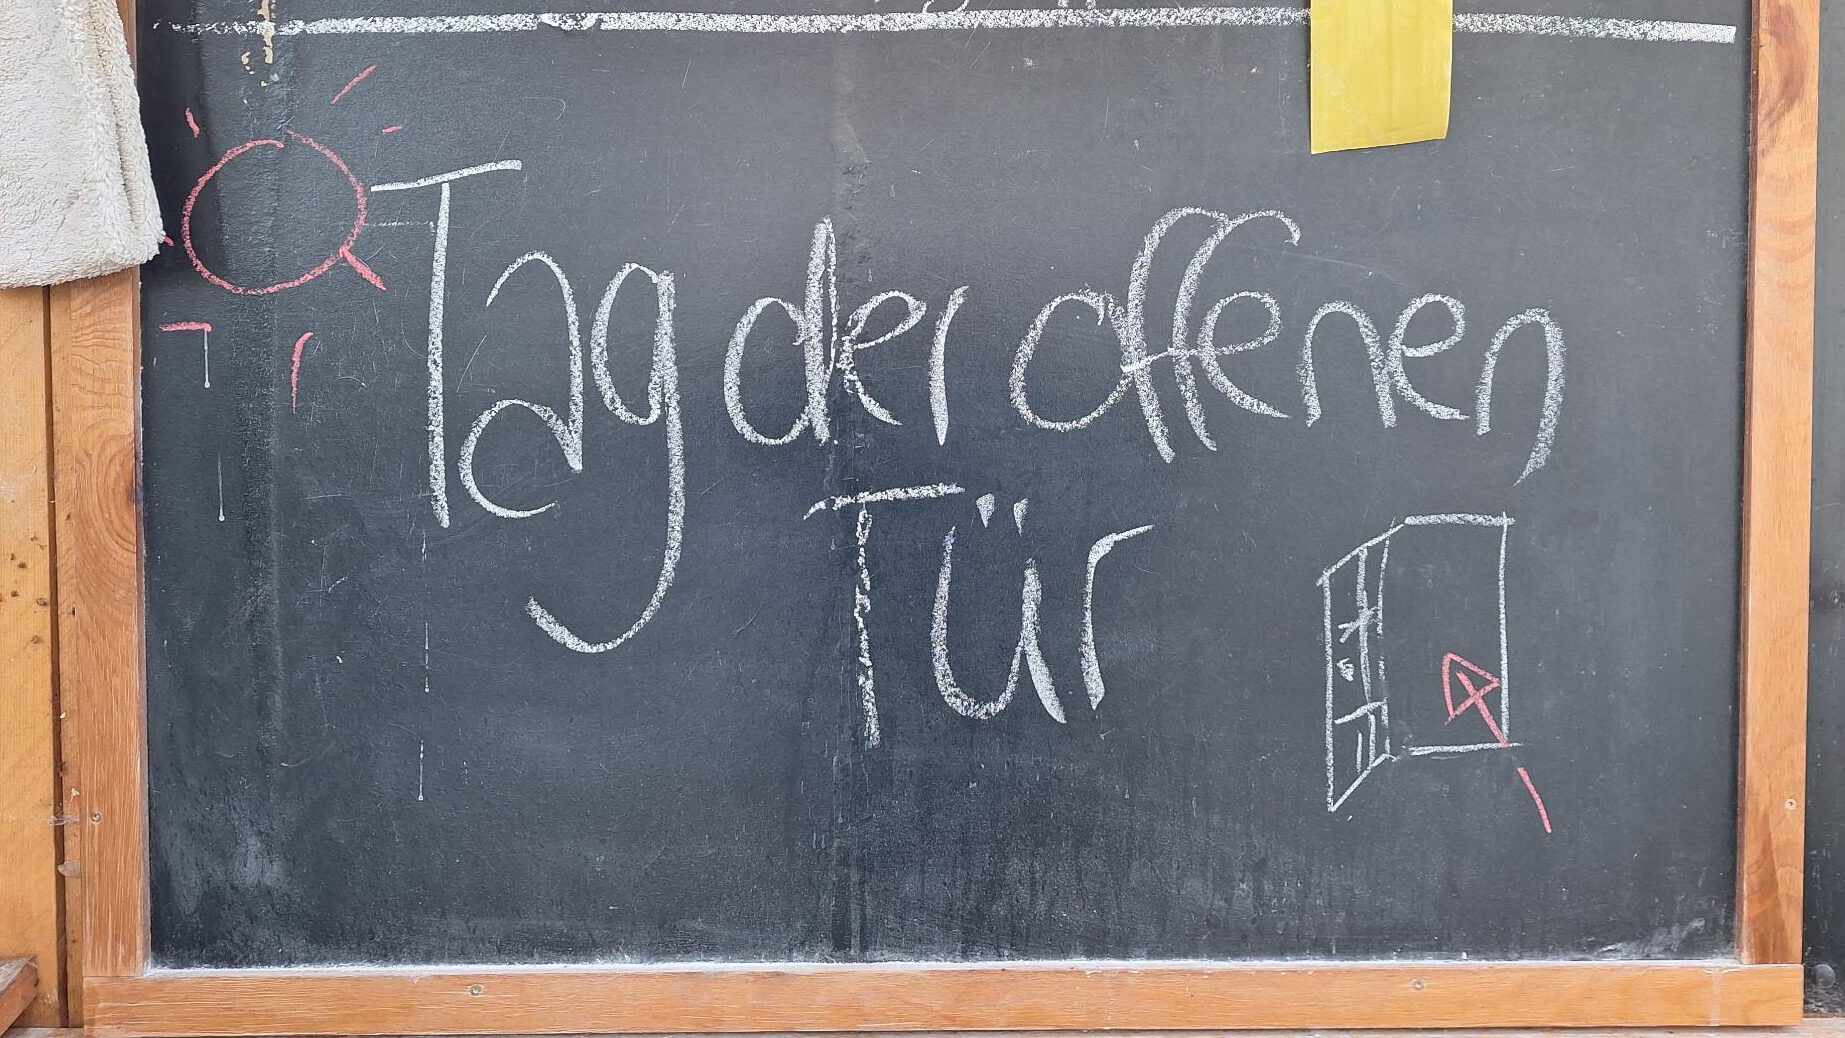 Tag der offenen
Tür